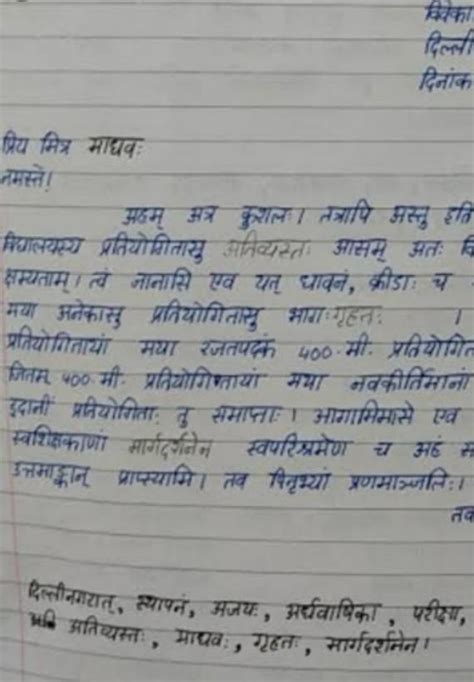 विवेका
दिल्ली
दिनांक
प्रिय मित्र माधवः
नमस्ते!
अहम् अत्र कुशलः। तत्रापि अस्तु इति
विद्यालयस्य प्रतियोगितासु अतिव्यस्तः आसम् अतः वि
क्षम्यताम्। त्वं जानासि एव यत् धावनं, क्रीडाः च
मया अनेकासु प्रतियोगितासु भागः गृहतः ।
प्रतियोगितायां मया रजतपदकं 400 मी. प्रतियोगित
जितम् 400 मी. प्रतियोगितायां मया नवकीर्तिमानां
इदानीं प्रतियोगिताः तु समाप्ताः। आगामिमासे एव
स्वशिक्षकाणां मार्गदर्शनेन स्वपरिश्रमेण च अहं स
उत्तमाङ्कान् प्राप्स्यामि। तव पितृभ्यां प्रणमाञ्जलिः।
तव
दिल्लीनगरात्, स्थापनं, अजयः, अर्धवार्षिका, परीक्षा,
अतिव्यस्तः, माधवः, गृहतः, मार्गदर्शनेन।